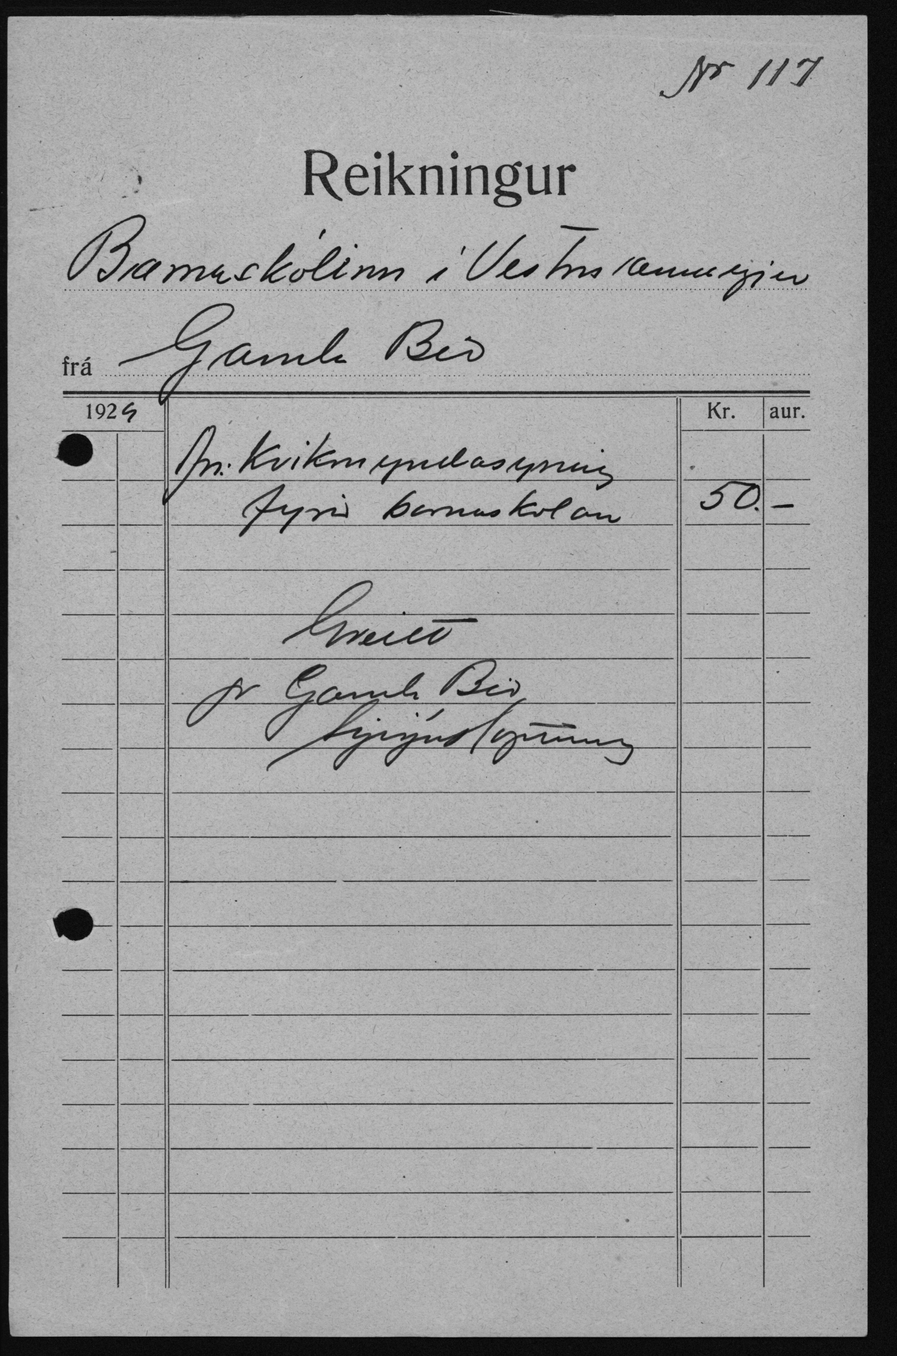 Nr 117
Reikningur
Barnaskólinn í Vestmannaeyjum
frá Gamla Bíó
1929 Kr. aur.
fyr. Kvikmyndasyning
fyrir barnaskolan 50. –
Greitt
pr Gamla Bio